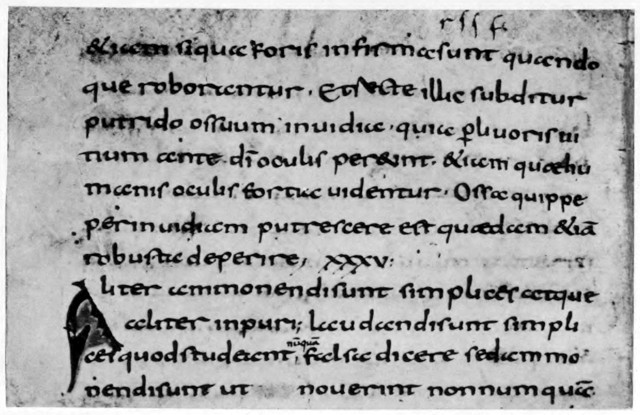 r s s f
&iam siquae foris infirmae sunt quando
que roborantur. Et recte illic subditur
putrido ossuum inuidia. quia p̲ liuoris ui
tium ante dī oculis pereunt. &iam quae hu
manis oculis fortia uidentur. Ossa quippe
per inuidiam putrescere est quaedam &iā
robusta deperire; XXXV.
Aliter ammonendi sunt simplices atque
aliter inpuri; laudandi sunt simpli
ces quod studeant nūquā falsa dicere sed ammo
nendi sunt ut nouerint nonnumquā